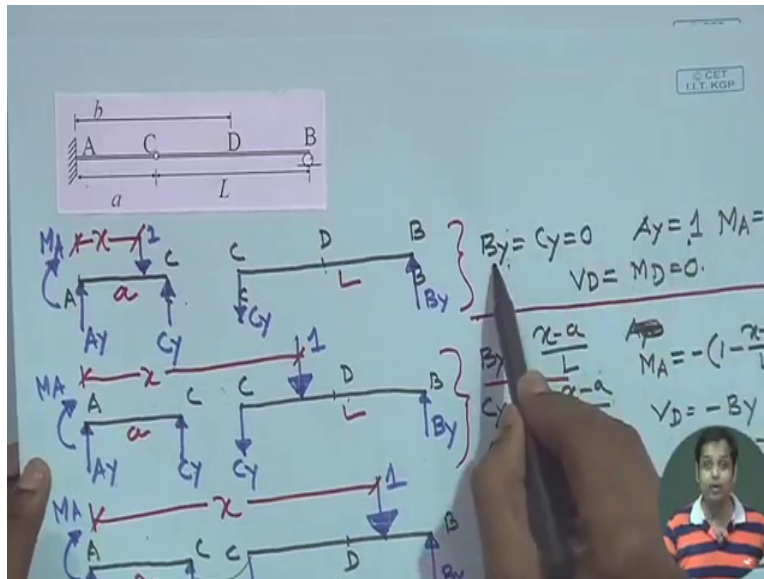 © CET
I.I.T. KGP
b
A C D B
a L
MA x 1 C
A a
AY CY
C D B
L B
C CY BY
By = Cy = 0 Ay = 1 MA =
VD = MD = 0.
x 1
MA A C
a
AY CY
C D B
L
CY BY
By x-a
L
MA = -(1-
Cy x-a
VD = - By
x 1
MA A C
C D B
By